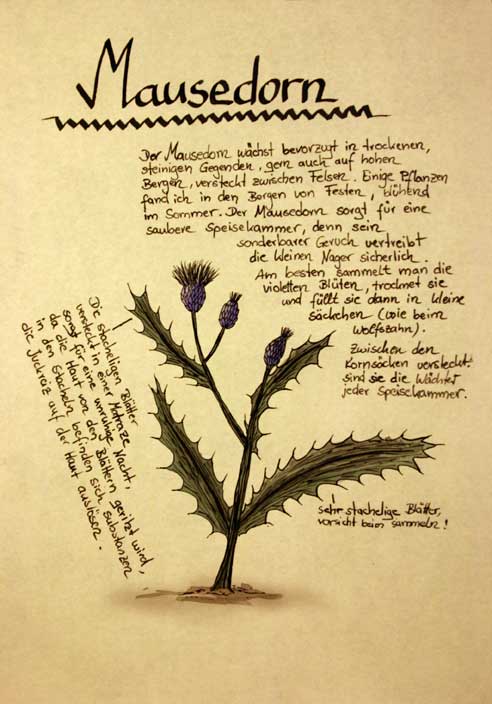 Mausedorn
Der Mausedorn wächst bevorzugt in trockenen,
steinigen Gegenden, gern auch auf hohen
Bergen, versteckt zwischen Felsen. Einige Pflanzen
fand ich in den Bergen von Festen, blühend
im Sommer. Der Mausedorn sorgt für eine
saubere Speisekammer, denn sein
sonderbarer Geruch vertreibt
die kleinen Nager sicherlich.
Am besten sammelt man die
violetten Blüten, trocknet sie
und füllt sie dann in kleine
säckchen (wie beim
Wolfszahn).
Zwischen den
Kornsäcken versteckt
sind sie die Wächter
jeder Speisekammer.
Die stacheligen Blätter
versteckt in einer Matraze
sorgt für eine unruhige Nacht,
da die Haut von den Blättern geritzt wird,
in den Stacheln befinden sich substanzen
die Juckreiz auf der Haut auslösen.
!
sehr stachelige Blätter,
vorsicht beim sammeln!